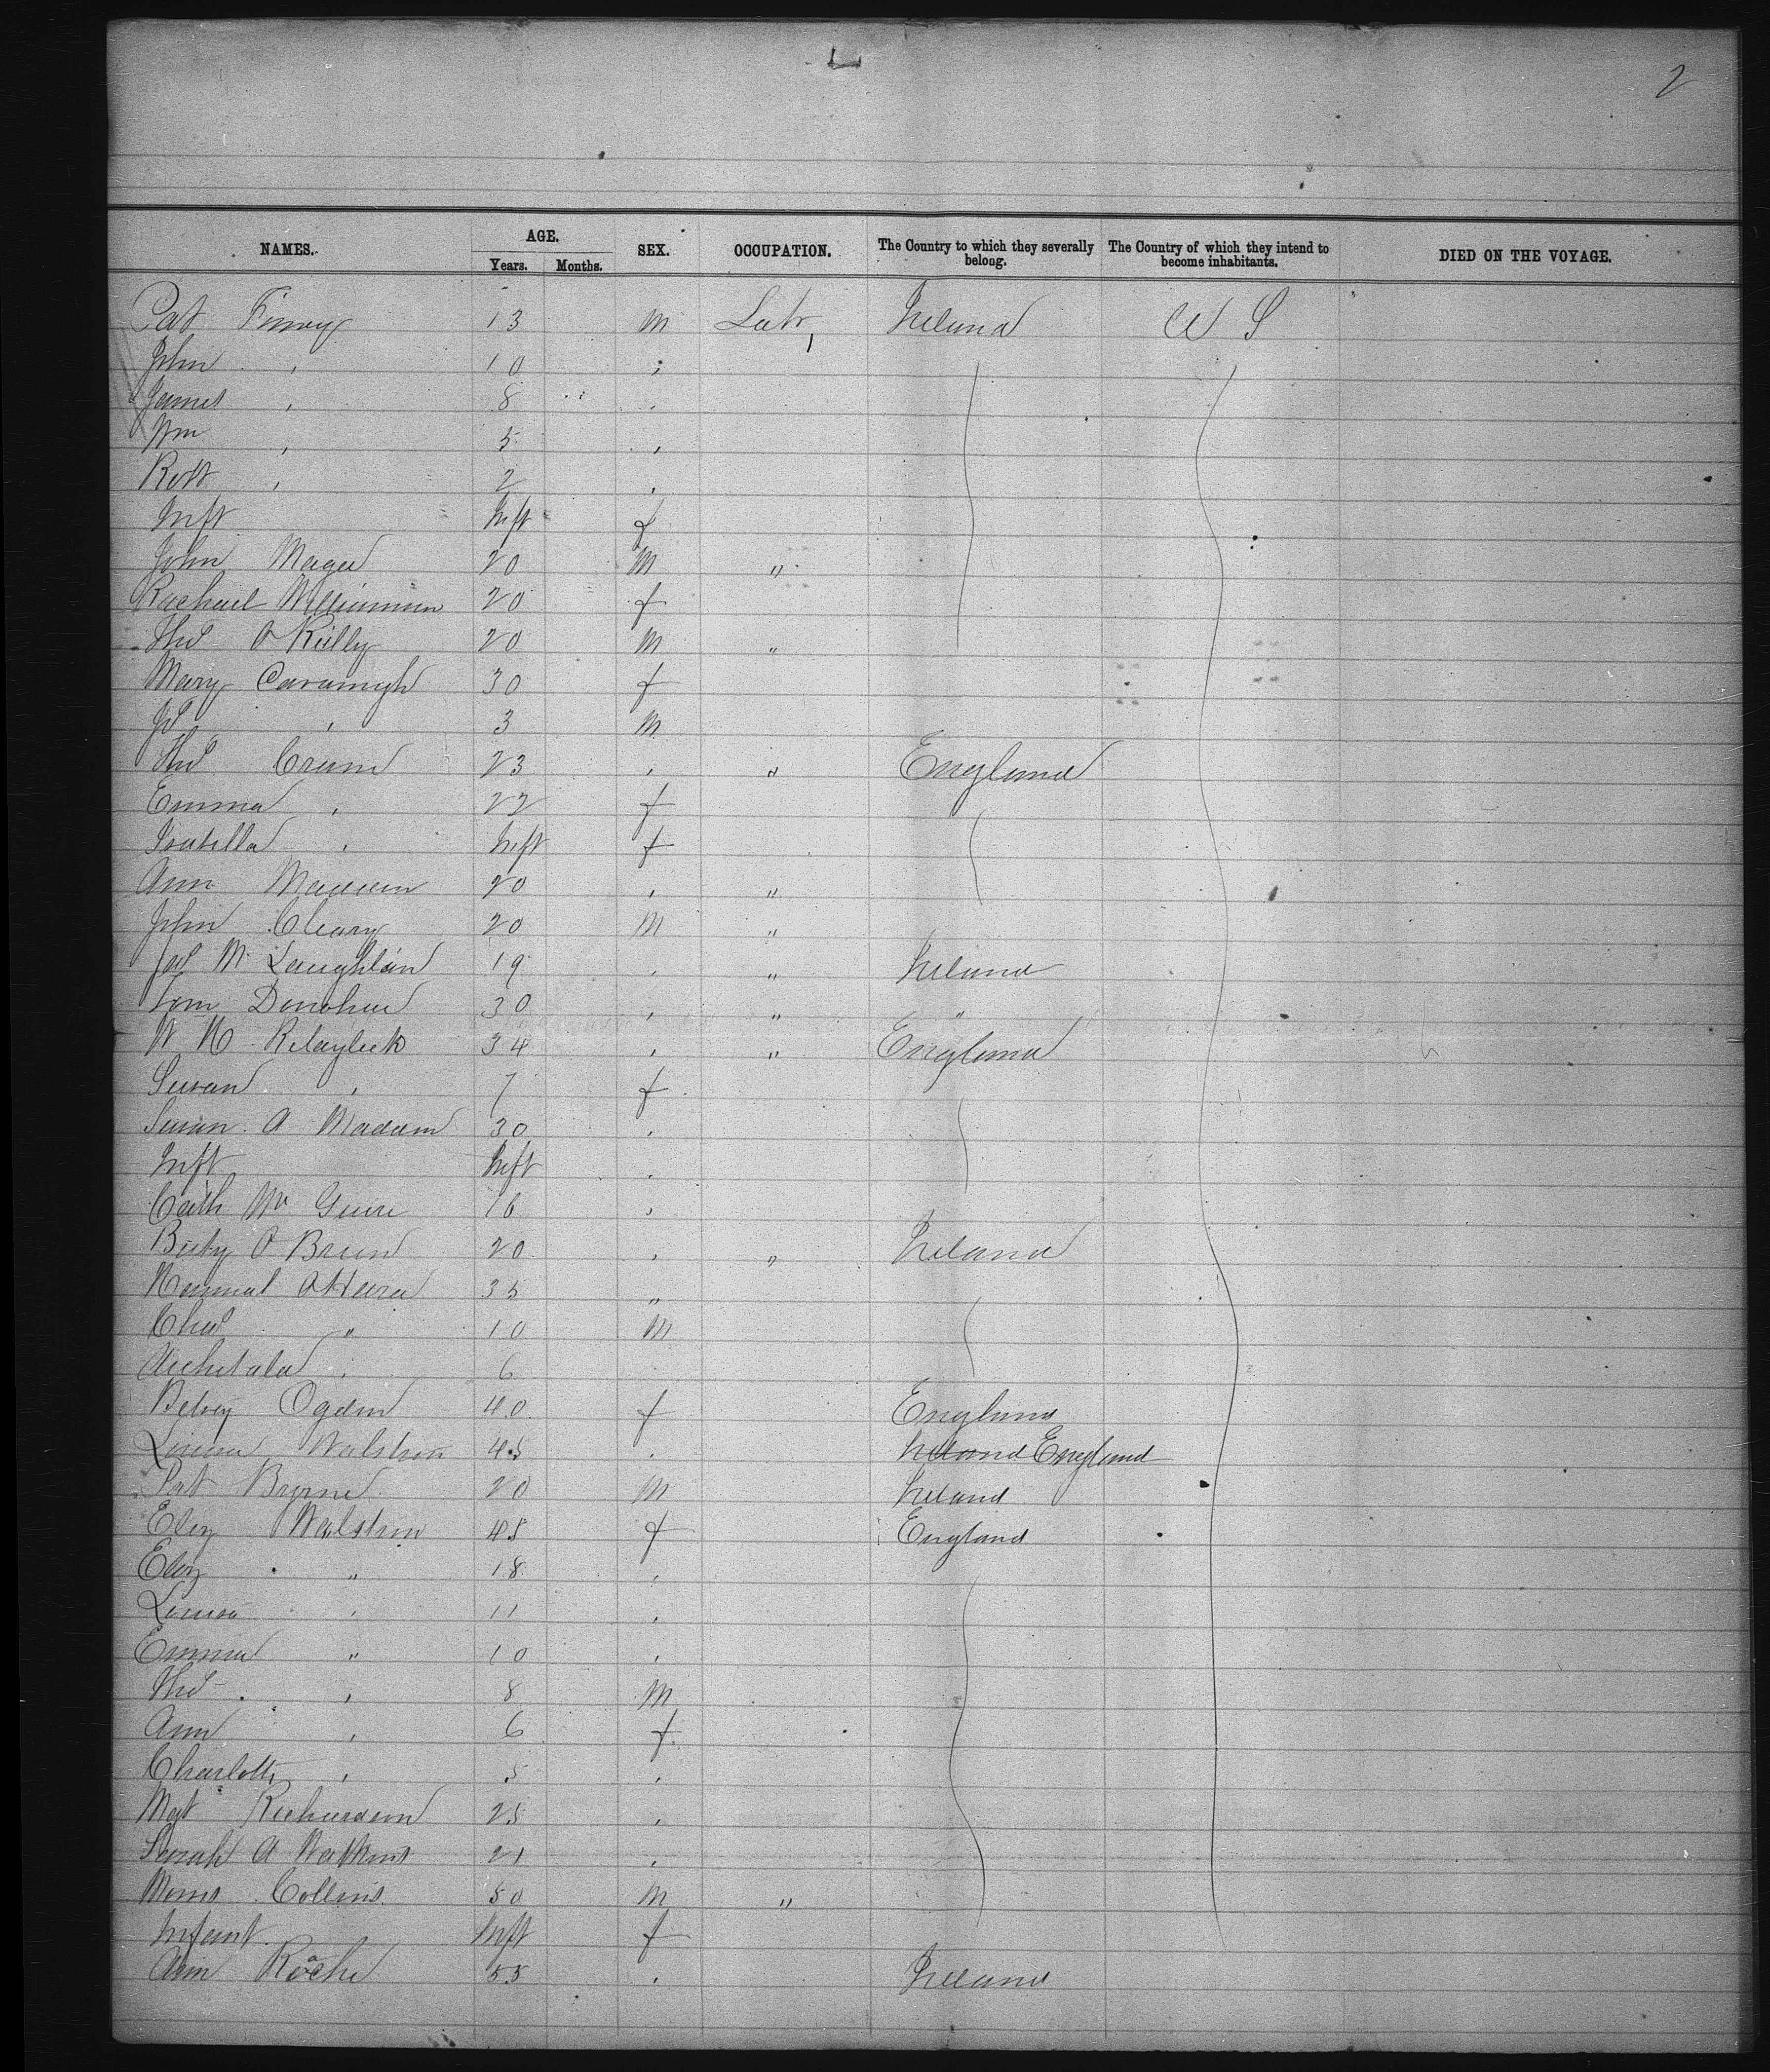 2
NAMES. AGE. SEX. OCCUPATION. The Country to which they severally belong. The Country of which they intend to become inhabitants. DIED ON THE VOYAGE.
Years. Months.
Pat 13 m Labr Ireland U S
John , 10 "
James , 8 ,
Wm , 5 ,
Robt , 2 ,
Inft Inft f
John Magee 20 m "
Rachael 20 f
Thos O Reilly 20 m "
Mary Cavanagh 30 f
Js , 3 m
Thos 23 , " England
Emma , 22 f
Isabella , Inft f
Ann 20 , "
John Cleary 20 m "
Jas Mc Laughlin 19 , " Ireland
Tom Donohue 30 , " "
W 34 , " England
Susan , 7 f
Susan A Madam 30 ,
Inft Inft ,
Cath Mc Guire 16 ,
O Brien 20 , " Ireland
O'Hara 35 "
Chas " 10 m
, 6
Betsey Ogden 40 f England
Walstron 45 , Ireland England
Pat Byrne 20 m Ireland
Eliz Walstron 45 f England
Eliz " 18 ,
Louisa , 11 ,
Emma " 10 ,
Thos , 8 m
Ann , 6 f
Charlotte , 5 ,
Mgt Richardson 25 ,
Sarah A Watkins 21 ,
Morris Collins 50 m "
Infant Inft f
Ann Roache 55 , Ireland